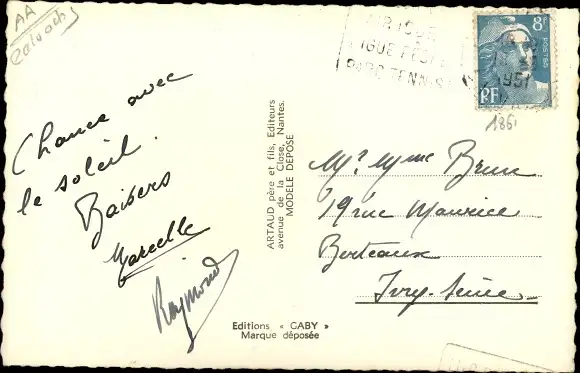 AA
Calvados
Chance avec
le soleil.
Baisers
Marcelle
Raymond
ARTAUD père et fils, Editeurs
avenue de la Close, Nantes.
MODELE DEPOSE
Editions « GABY »
Marque déposée
8F
POSTES
RF
1951
1861
Mr Mme Brun
19 rue Maurice
Berteaux
Ivry-Seine